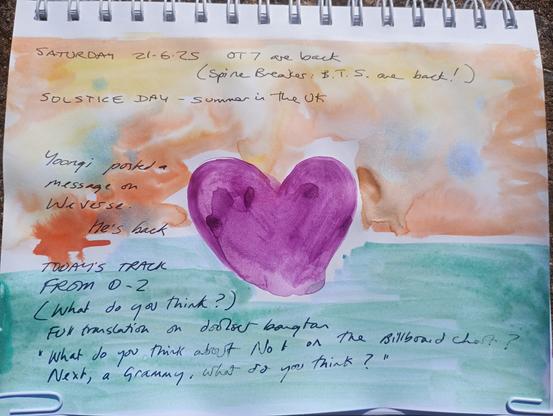 SATURDAY 21-6-25 OT7 are back
(Spine Breaker: B.T.S. are back!)
SOLSTICE DAY - Summer in The UK
Yoongi posted a
message on
Weverse.
He's back
TODAY'S TRACK
FROM D-2
(What do you think?)
Full translation on doolset bangtan
"What do you think about No 1 on the Billboard chart?
Next, a Grammy, what do you think?"